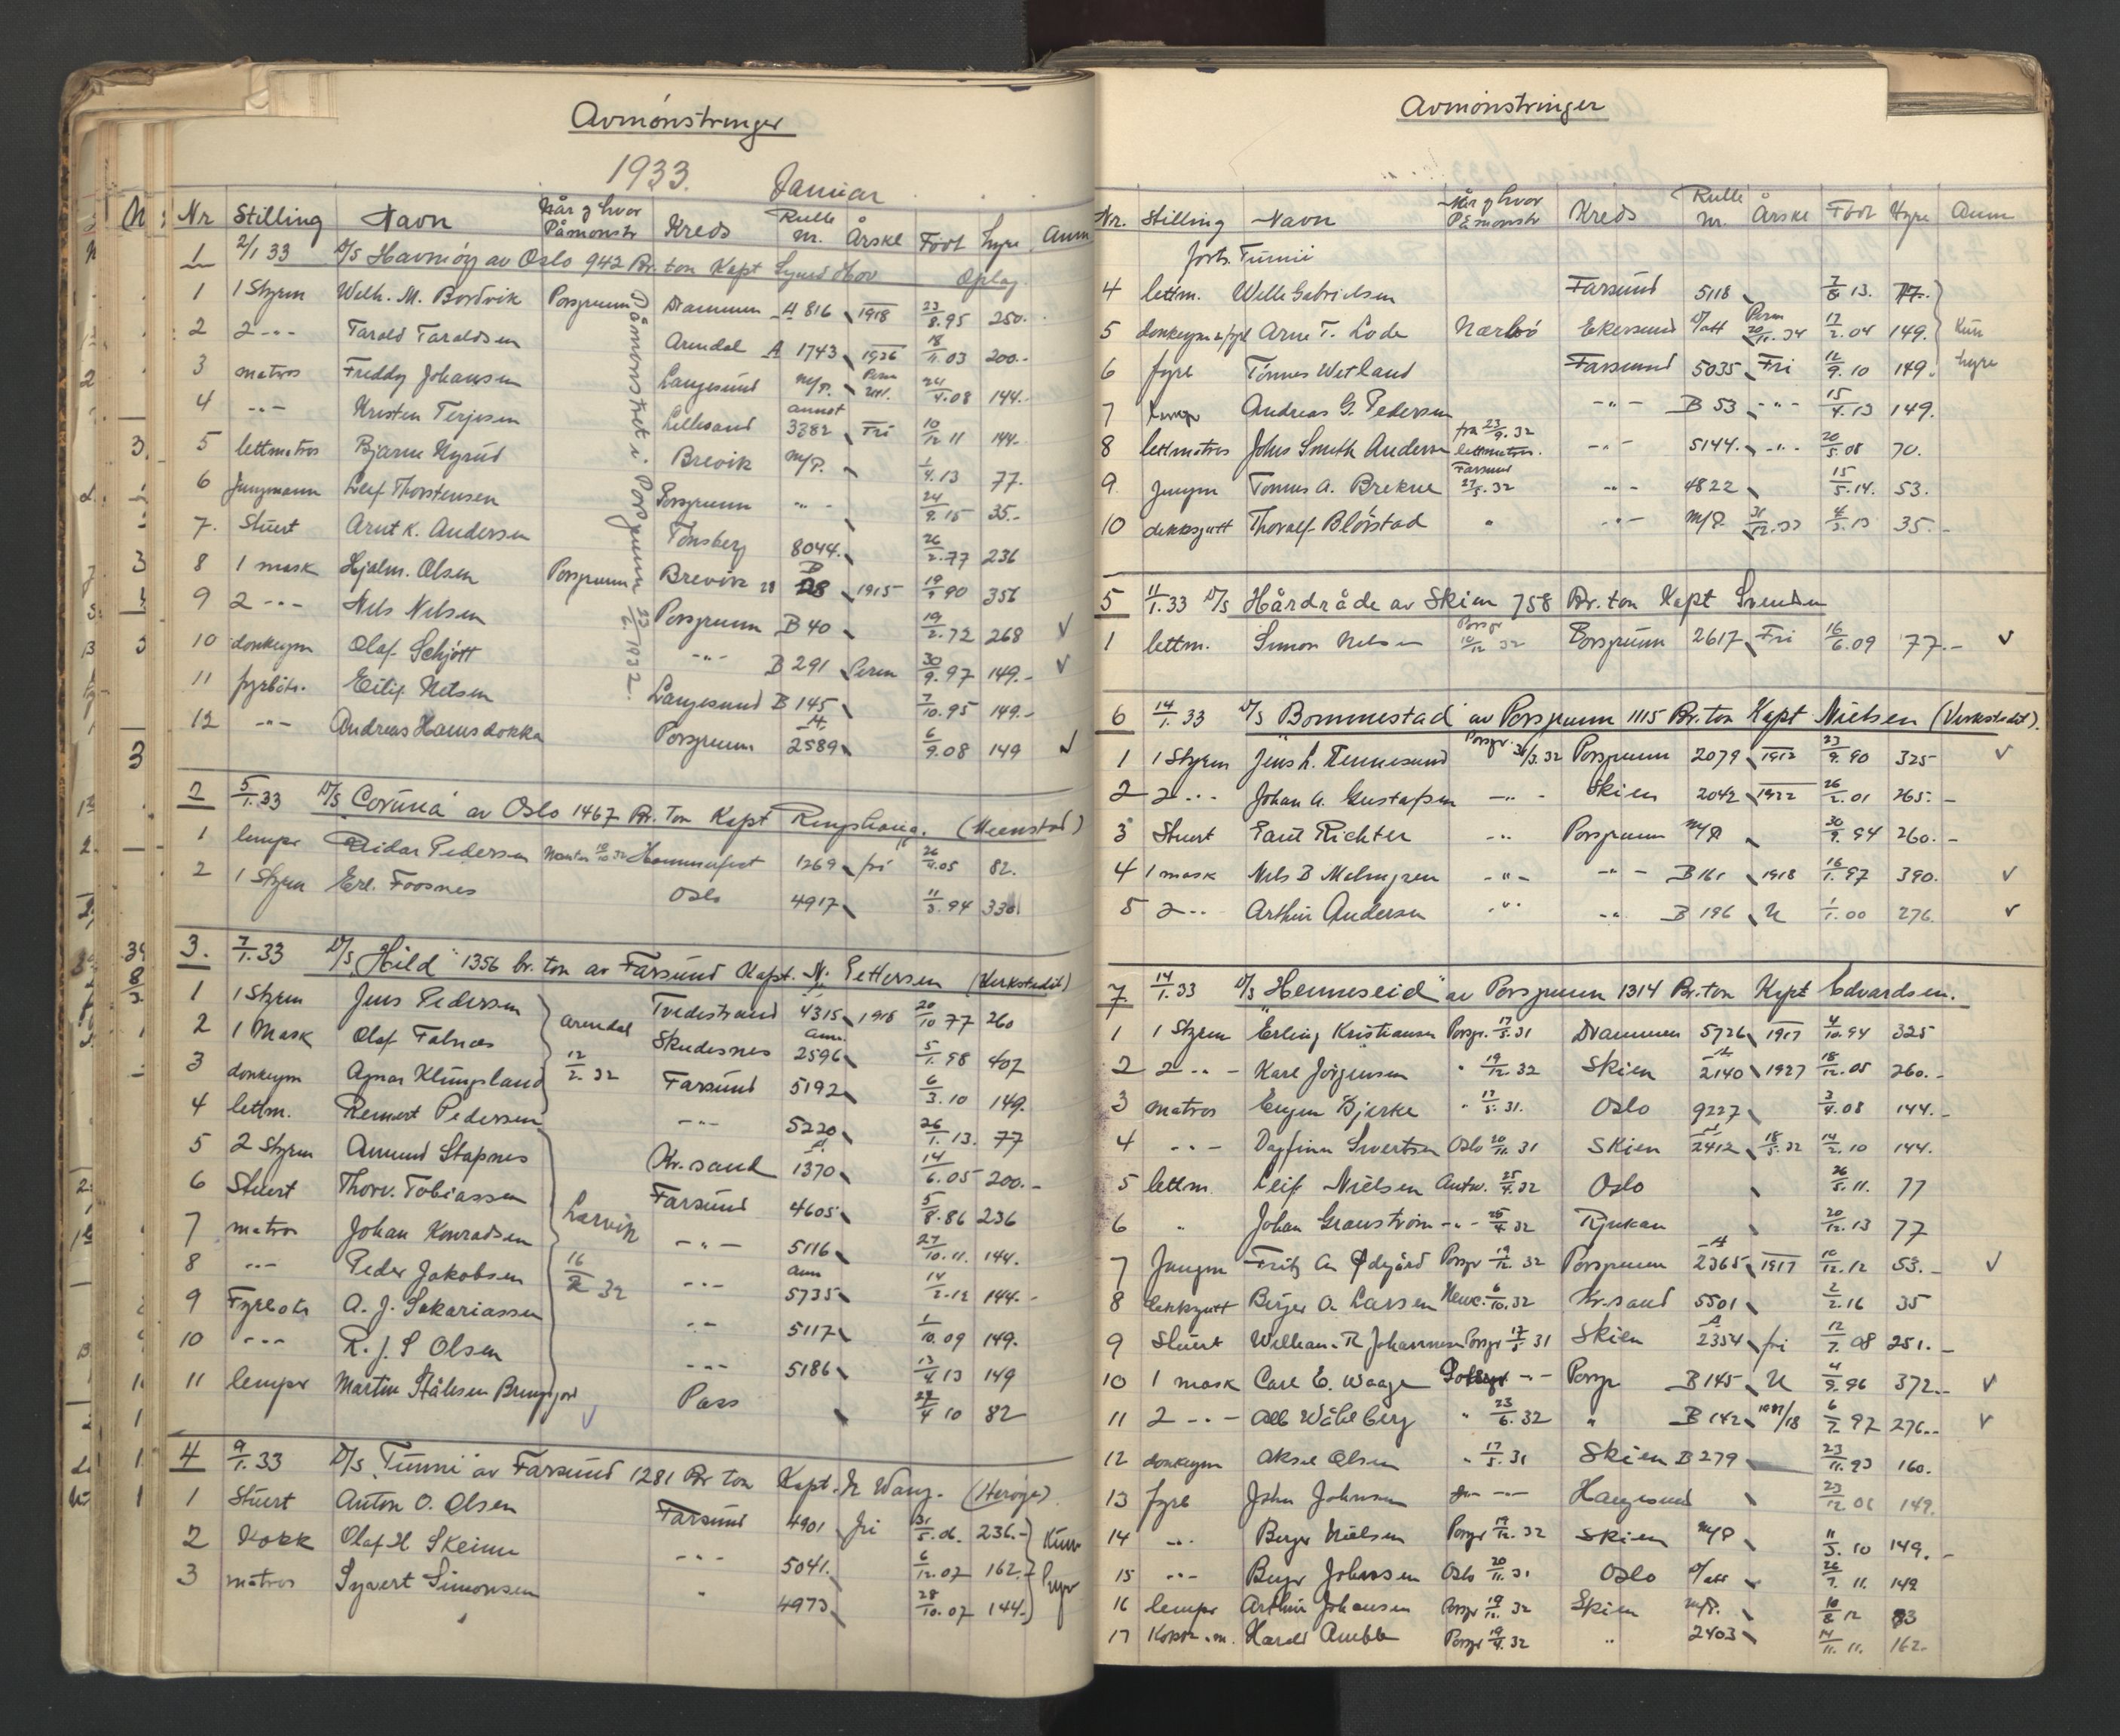 Avmönstringer
1933. Januar
Nr Stilling Navn Når & hvor Påmonstr Kreds Rulle nr. Årskl Födt hyre Anm
1 2/1 33 D/S Havmöy av Oslo 942 Br. ton Kapt Oplag
1 1 Styrm Welh. M. Bordvik Porsgrunn Drammen A 816 1918 23/8.95 250.
2 2 -"- Tarald Taraldsen Arendal A 1743 1926 18/11.03 200.-
3 matros Freddy Johansen Langesund M/P. Perm 24/4.08 144.-
4 -"- Kristen Terjesen Lillesand annot 3382 Fri 10/12 11 144.-
5 lettmatros Bjarne Nyrud Brevik M/P. 1/4.13 77.
6 Jungmann Leif Thorstensen Porsgrunn -"- 24/9.15 35.-
7. Stuert Arnt K. Andersen Tönsberg 8044. 26/2.77 236
8 1 mask Hjalm. Olsen Porsgrunn Brevik 28 1915 90 356
9 2 -"- Nils Nilsen Porsgrunn B 40 19/2.72 268 ✓
10 donkeym Olaf Schjött -"- B 291 Perm 30/9.97 149.- ✓
11 fyrböt. Eilif Nilsen Langesund B 145 7/10.95 149.-
12 -"- Andreas Hansdokka Porsgrunn A 2589 6/9.08 149 ✓
Påmönstret i Porsgrunn 1932.
2 5/1.33 D/S "Coruña" av Oslo 1467 Br. Ton Kapt Ringshaug. (Menstad)
1 lemper Reidar Pedersen 32 Hammerfest 1269 fri 26/4.05 82.
2 1 Styrm Erl. Foosnes Oslo 4917 11/3.94 330
3. 7/1.33 D/S "Hild" 1356 br. ton av Farsund Kapt. N. Pettersen (Verkstedet)
1 1 Styrm Jens Pedersen Tvedestrand 4315 1918 20/10 77 260
2 1 Mask Olaf Falnes Arendal Skudesnes ann. 2596 5/1.98 407
3 donkeym Agnar Klungland 12/2.32 Farsund 5192 6/3.10 149.
4 lettm. Reinert Pedersen -"- 5220 26/1.13. 77
5 2 Styrm Amund Stapnes Kr.sand A 1370 14/6.05 200.-
6 Stuert Thorv. Tobiassen Farsund 4605 5/8.86 236
7 matros Johan Konradsen Larvik -"- 5116 27/10.11. 144.
8 -"- Peder Jakobsen 16/2 32 -"- ann 5735 14/2.12 144.-
9 Fyrbötr A. J. Sakariassen -"- 5117 1/10.09 149.
10 -"- R. J. S Olsen -"- 5186 13/4 13 149
11 lemper Martin Ståhsen Pass 27/4 10 82
✓
4 9/1.33 D/S "Tunni" av Farsund 1281 Br ton Kapt. N Wang. (Heröya)
1 Stuert Anton O. Olsen Farsund 4901 fri 31/5.06. 236.- Kun
2 Kokk Olaf H Skeime -"- 5041. 6/12.07 162.- hyre
3 matros Syvert Simonsen " 4973 28/10.07 144.-
Avmönstringer
Nr. Stilling Navn Når & hvor Påmonstr Kreds Rulle nr. Årskl Född Hyre Anm
forts. Tunni
4 lettm. Welh Gabrielsen Farsund 5118 7/8 13. 77.
5 donkeym Arne T. Lode Nærbö Ekersund D/att Perm 20/11.34 17/2.04 149. Kun
6 fyrb Tönnes Wetland Farsund 5035 Fri 12/9.10 149. hyre
7 Andreas G. Pedersen -"- B 53 -"- 15/4.13 149.
8 lettmatros Johs Smith Andersen fra 23/9.32 lettmatros. -"- 5144. -"- 20/5.08 70.
9 jungm Tönnes A. Brekne Farsund 27/5.32 -"- 4822 15/5.14. 53.
10 dekksgutt Thoralf Blörstad " -"- M/P. 31/12.33 4/3.13 35.-
5 11/1.33 D/S Hårdråde av Skien 758 Br. ton Kapt Svendsen
1 lettm. Simon Nelsen Porsgr 10/12 32 Porsgrunn 2617 Fri 16/6.09 77.- ✓
6 14/1.33 D/S "Bommestad" av Porsgrunn 1115 Br. ton Kapt Nielsen (Verkstedet).
1 1 Styrm Jens L. Rennesund Porsgr. 3.32 Porsgrunn 2079 1912 23/9.90 325 ✓
2 2 -"- Johan A. Gustafsen -"- Skien 2042 1922 26/2.01 265.-
3 Stuert Faut Richter -"- Porsgrunn M/P 30/9.94 260.-
4 1 mask Nils B Malmgren -"- -"- B 161 1918 16/1.97 390. ✓
5 2 -"- Arthur Andersen -"- -"- B 196 U 1/1.00 276. ✓
7 14/1.33 D/S "Henneseid" av Porsgrunn 1314 Br. ton Kapt Edvardsen.
1 1 Styrm Erling Kristiansen Porsgr. 17/5.31 Drammen 5726 1917 4/10.94 325
2 2 -"- Karl Jörgensen " 19/12.32 Skien A 2140 1927 18/12.05 260.-
3 matros Eugen Bjerke " 17/5.31. Oslo 9227 3/4.08 144.-
4 -"- Dagfinn Sivertsen Oslo 20/11.31 Skien A 2412 18/5.32 14/2.10 144.
5 lettm. Leif Nielsen Antw. 25/4.32 Oslo 26/5.11. 77
6 " Johan Granström -"- 25/4.32 Rjukan 20/12.13 77
7 Jungm Fritz A. Ödegård Porsgr 19/12.32 Porsgrunn A 2365 1917 10/12.12 53.- ✓
8 dekksgutt Birger A. Larsen Newc. 6/10.32 Kr.sand 5501 2/2.16 35
9 Stuert William. R Johannesen Porsgr 17/5 31 Skien A 2354 fri 12/7.08 251.-
10 1 mask Carl E. Waage -"- Porsgr B 145 U 4/9.96 372.- ✓
11 2 -"- Alb Wåhlberg " 23/6.32 " B 142 1917/18 6/7.97 276.- ✓
12 donkeym Aksel Olsen " 17/5.31 Skien B 279 23/11.93 160.
13 fyrb John Johnsen -"- Haugesund 23/12 06 149.
14 -"- Birger Nielsen Porsgr 19/12.32 Skien M/P 11/3.10 149.-
15 -"- Birger Johnsen Oslo 20/11.31 Oslo D/att 26/7.11. 149
16 lemper Arthur Johansen Porsgr 19/12.32 Skien M/P. 10/8 12 83
17 Kokk. m. Harald Porsgr 19/4.32 " 2403 14/11.11. 162.